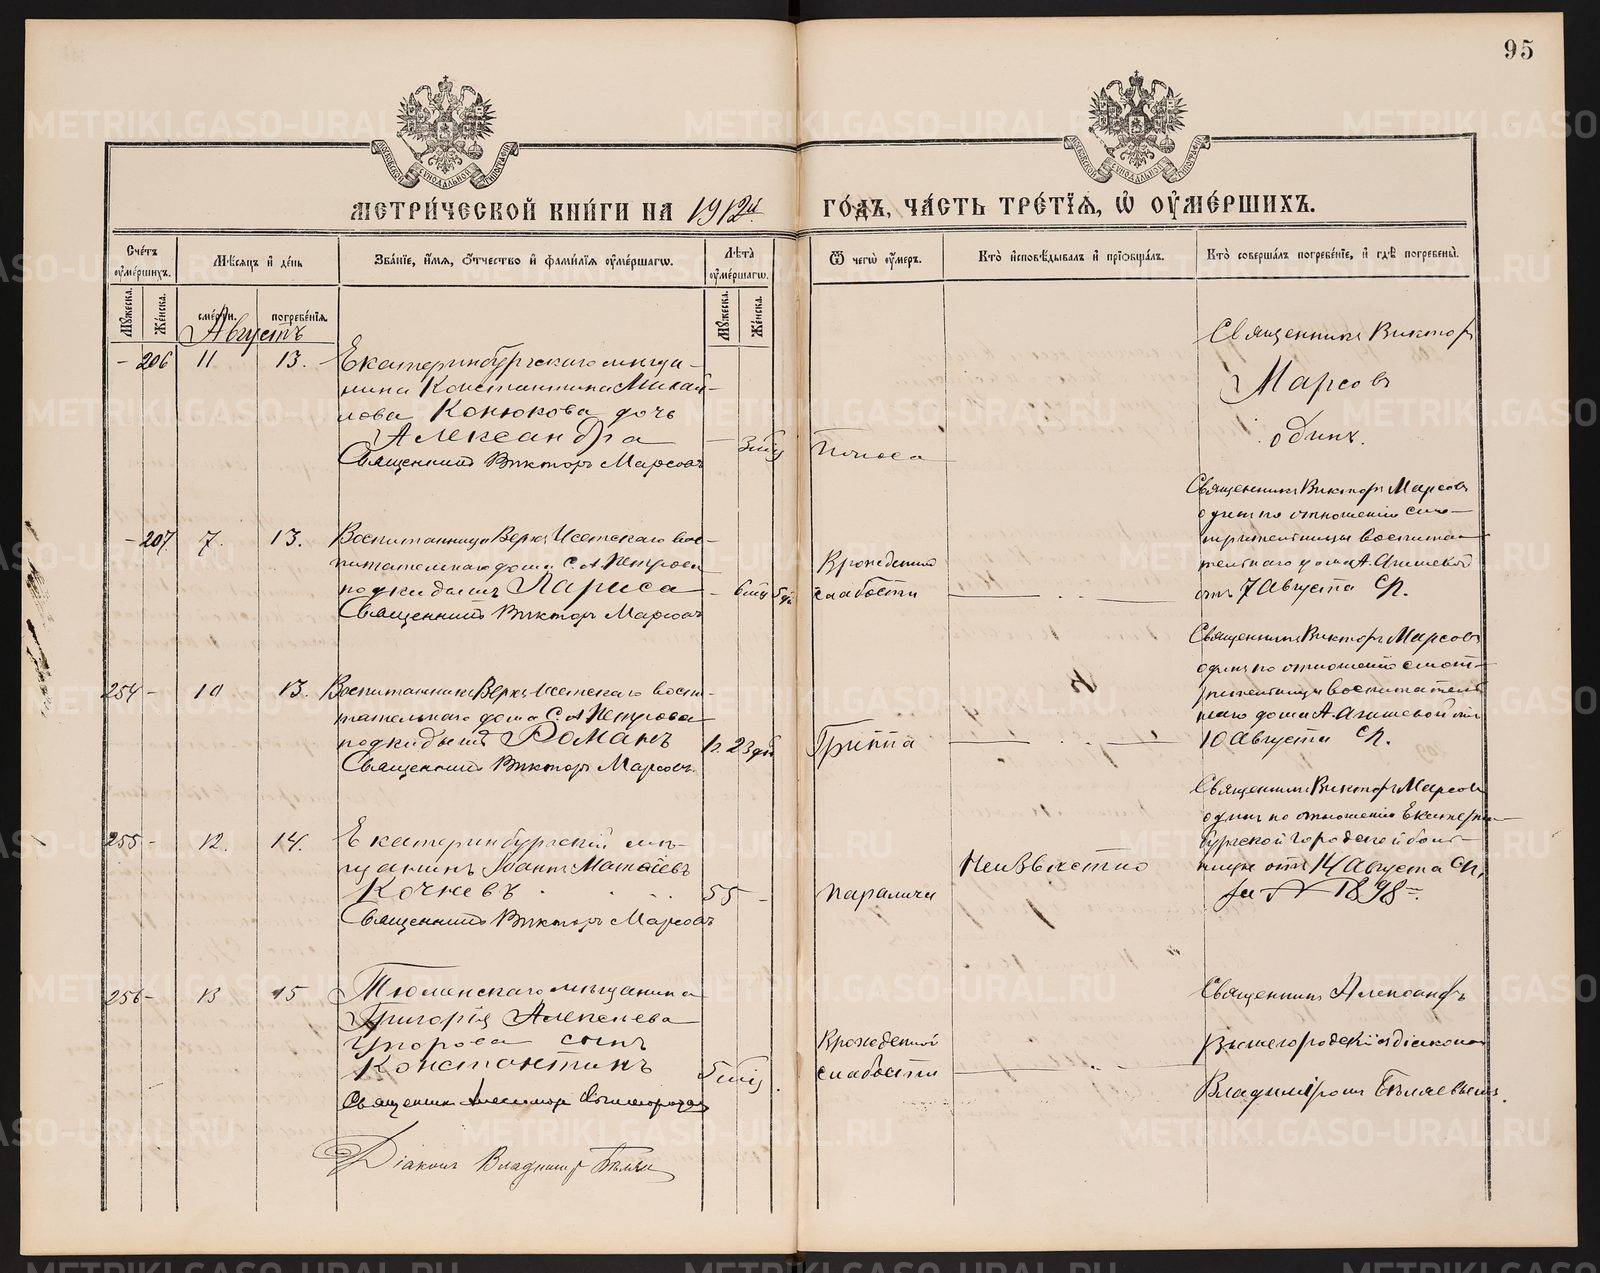 95
МЕТРИ́ЧЕСКОЙ КНИ́ГИ НА 1912й ГО́ДЪ, ЧА́СТЬ ТРЕ́ТЇѦ, Ѡ҆ ОУ҆МЕ́РШИХЪ.
Сче́тъ оу҆ме́ршихъ.
Мѣ́сяцъ и҆ де́нь
Зва́нїе, и҆́мѧ, о҆́тчество и҆ фами́лїѧ оу҆ме́ршагѡ.
Лѣ́та оу҆ме́ршагѡ.
Ѿ чегѡ̀ оу҆́меръ.
Кто̀ и҆сповѣ́дывалъ и҆ прїѡбща́лъ.
Кто̀ соверша́лъ погребе́нїе, и҆ гдѣ̀ погребены̀.
Мꙋ́жеска.
Же́нска.
сме́рти.
погребе́нїѧ.
Мꙋ́жеска.
Же́нска.
Августъ
- 206 11 13. Екатеринбургскаго мѣща-
нина Константина Михай-
лова Конюкова дочь
Александра — 3 мѣс
Священникъ Викторъ Марсовъ
Поноса
Священникъ Викторъ
Марсовъ
одинъ.
- 207. 7. 13. Воспитанница Верхъ Исетскаго вос-
питательнаго дома С. А. Петрова
подкидышъ Лариса — 6 мѣс 5 дн
Священникъ Викторъ Марсовъ
Врожденной
слабости
Священникъ Викторъ Марсовъ
одинъ по отношенію смо-
трительницы воспита-
тельнаго дома А. Агишевой
отъ 7 Августа с/г.
254 - 10 13. Воспитанникъ Верхъ Исетскаго воспи-
тательнаго дома С. А. Петрова
подкидышъ Романъ 23 дн
Священникъ Викторъ Марсовъ.
Гриппа
Священникъ Викторъ Марсовъ
одинъ по отношенію смот-
рительницы воспитатель
наго дома А. Агишевой отъ
10 Августа с/г.
255 - 12. 14. Екатеринбургскій мѣ-
щанинъ Іоаннъ Матѳіевъ
Кочневъ 55 -
Священникъ Викторъ Марсовъ
Паралича
Неизвѣстно
Священникъ Викторъ Марсовъ
одинъ по отношенію Екатерин
бургской городской боль-
ницы отъ 14 Августа с/г.
за № 1898.
256 - 13 15 Тюменскаго мѣщанина
Григорія Алексѣева
сынъ
Константинъ 5 мѣс.
Священникъ Александръ Вышегородскій
Діаконъ Владиміръ Бѣляевъ
Врожденной
слабости
Священникъ Александръ
Вышегородскій съ діакономъ
Владиміромъ Бѣляевымъ.
METRIKI.GASO-URAL.RU